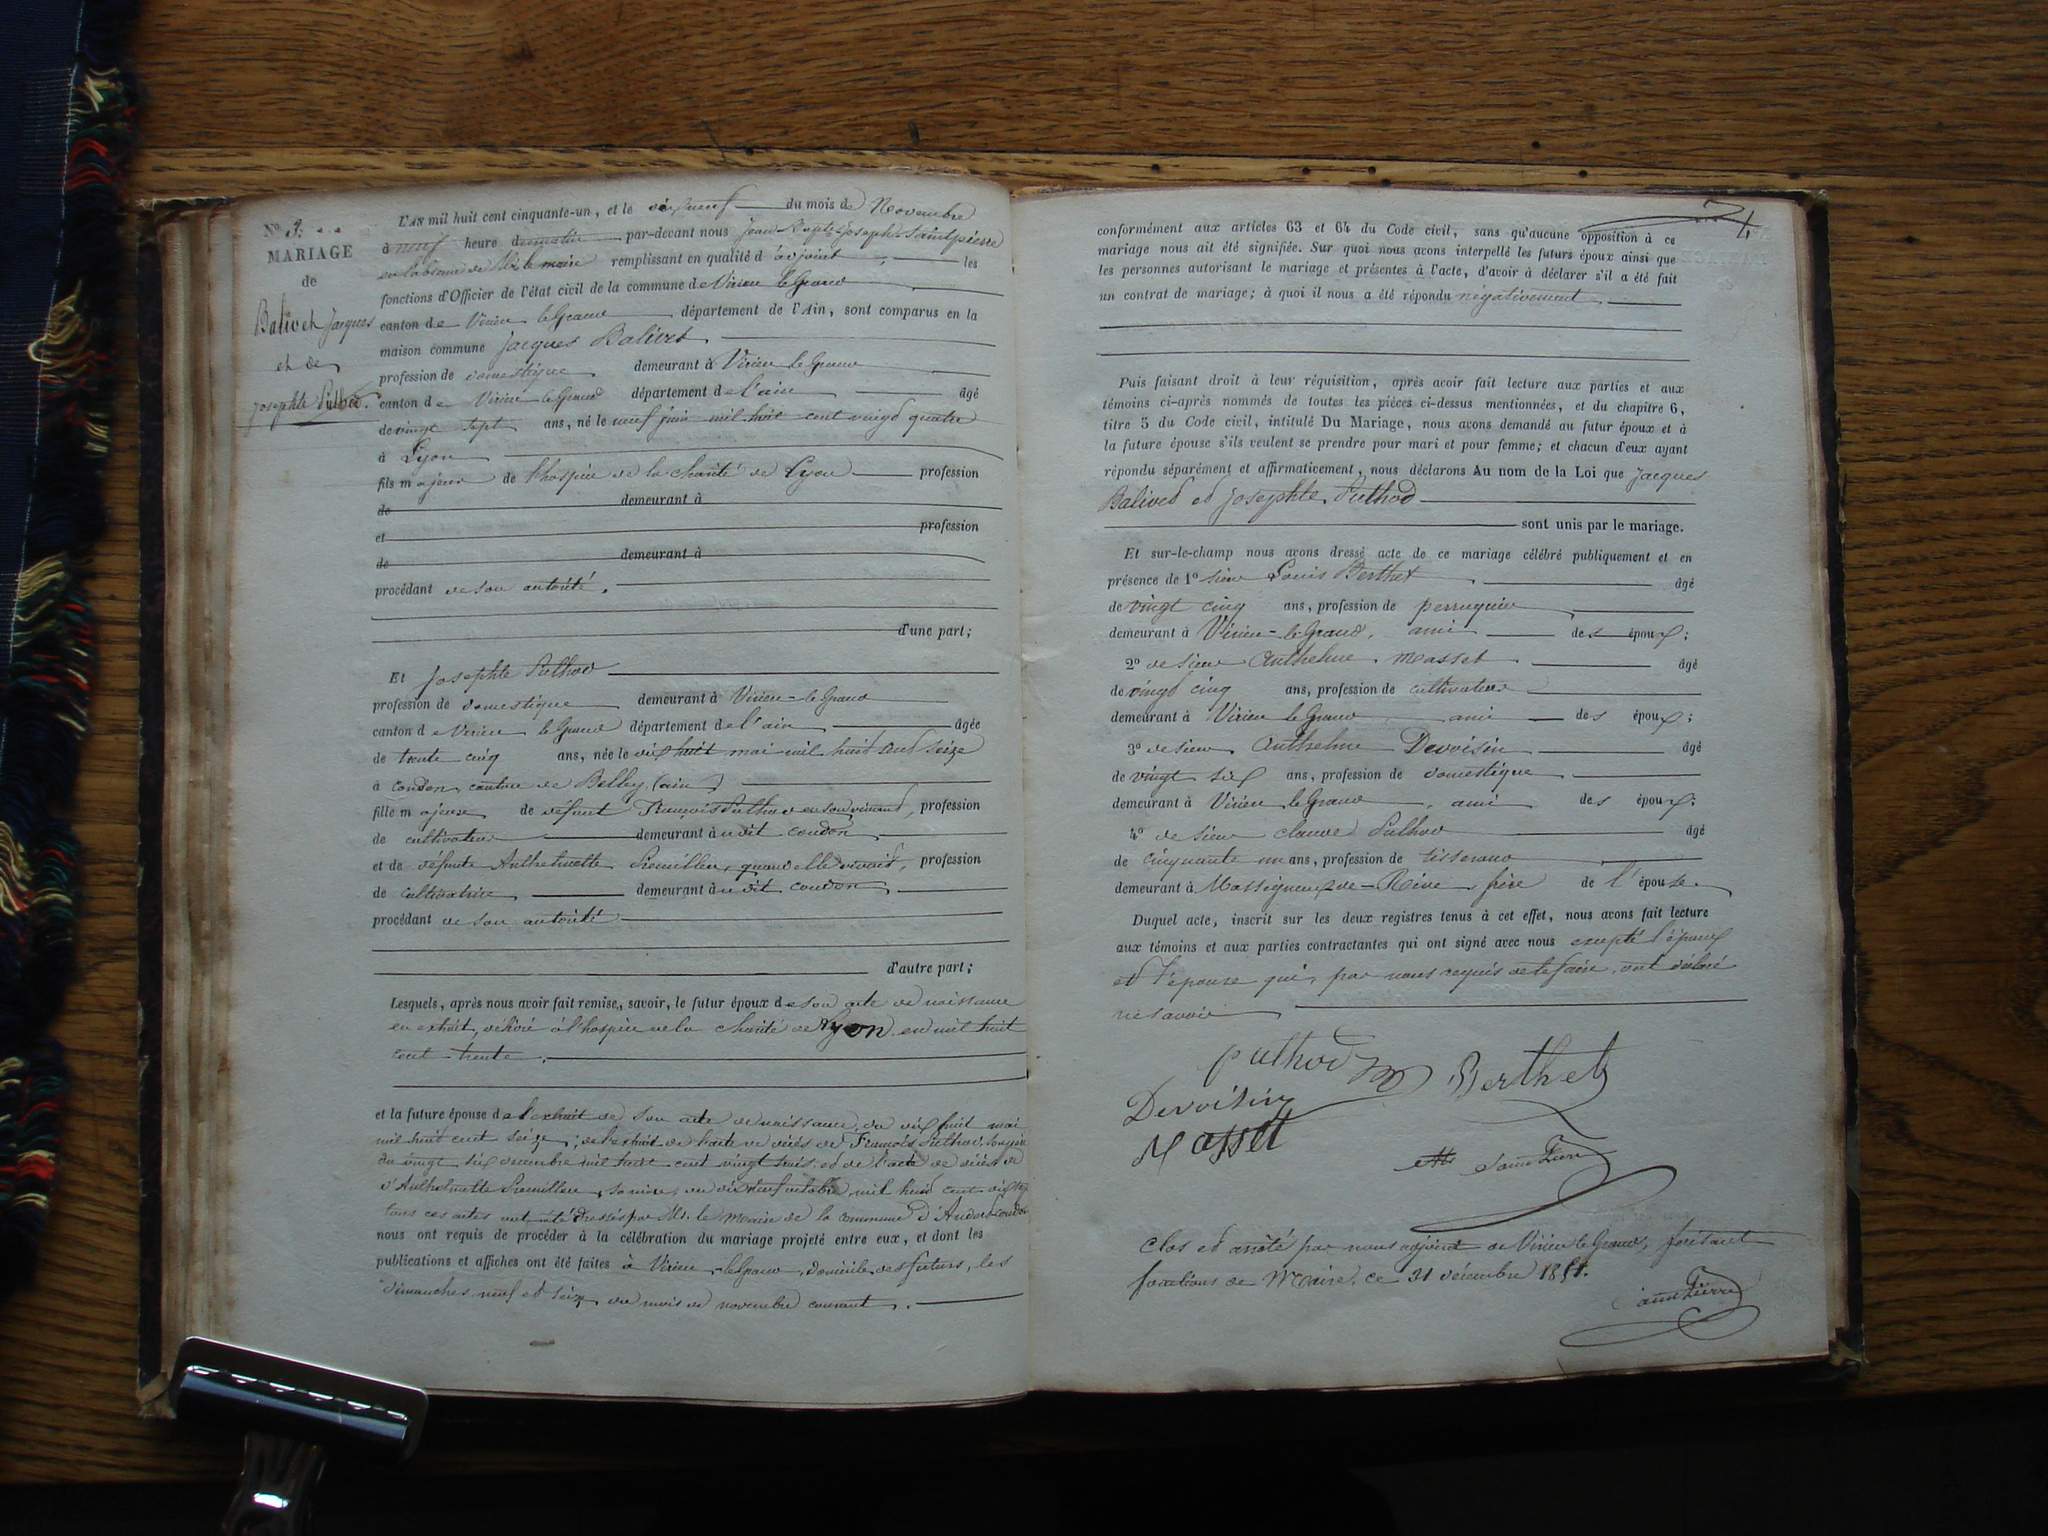 N° 3.
MARIAGE
de
Balivet Jacques
et de
Josephte Puthod.
L'AN mil huit cent cinquante-un, et le dix neuf du mois de Novembre
à neuf heure du matin par-devant nous Jean Bapte Joseph Saintpierre
en l'absence de Mr le maire remplissant en qualité d'adjoint les
fonctions d'Officier de l'état civil de la commune de Virieu le Grand
canton de Virieu le Grand département de l'Ain, sont comparus en la
maison commune Jacques Balivet
profession de domestique demeurant à Virieu le Grand
canton de Virieu le Grand département de l'ain âgé
de vingt sept ans, né le neuf juin mil huit cent vingt quatre
à Lyon
fils majeur de l'hospice de la charité de Lyon profession
de demeurant à
et profession
de demeurant à
procédant de son autorité.
d'une part;
Et Josephte Puthod
profession de domestique demeurant à Virieu-le Grand
canton de Virieu le Grand département de l'ain âgée
de trente cinq ans, née le dix huit mai mil huit cent seize
à condon canton de Belley (ain)
fille majeure de défunt François Puthod en son vivant, profession
de cultivateur demeurant à udit condon
et de défunte Anthelmette Premillieu, quand elle vivait, profession
de cultivatrice demeurant à udit condon
procédant de son autorité
d'autre part;
Lesquels, après nous avoir fait remise, savoir, le futur époux de son acte de naissance
en extrait, délivré à l'hospice de la charité de Lyon en mil huit
cent trente.
et la future épouse de l'extrait de son acte de naissance, du dix huit mai
mil huit cent seize, de l'extrait de l'acte de décès de François Puthod, son père
du vingt six decembre mil huit cent vingt trois et de l'acte de décès de
d'Anthelmette Premillieu, sa mère, du dix neuf octobre mil huit cent
tous ces actes ont été dressés par Mr. le Maire de la commune d'Andert-Condon
nous ont requis de procéder à la célébration du mariage projeté entre eux, et dont les
publications et affiches ont été faites à Virieu-le Grand, domicile des futurs, les
dimanches neuf et seize du mois de novembre courant.
4
conformément aux articles 63 et 64 du Code civil, sans qu'aucune opposition à ce
mariage nous ait été signifiée. Sur quoi nous avons interpellé les futurs époux ainsi que
les personnes autorisant le mariage et présentes à l'acte, d'avoir à déclarer s'il a été fait
un contrat de mariage; à quoi il nous a été répondu négativement
Puis faisant droit à leur réquisition, après avoir fait lecture aux parties et aux
témoins ci-après nommés de toutes les pièces ci-dessus mentionnées, et du chapitre 6,
titre 5 du Code civil, intitulé Du Mariage, nous avons demandé au futur époux et à
la future épouse s'ils veulent se prendre pour mari et pour femme; et chacun d'eux ayant
répondu séparément et affirmativement, nous déclarons Au nom de la Loi que Jacques
Balivet et Josephte Puthod
sont unis par le mariage.
Et sur-le-champ nous avons dressé acte de ce mariage célébré publiquement et en
présence de 1° sieur Louis Berthet âgé
de vingt cinq ans, profession de perruquier
demeurant à Virieu-le Grand, ami des époux;
2° de sieur Anthelme Masset âgé
de vingt cinq ans, profession de cultivateur
demeurant à Virieu le Grand ami des époux;
3° de sieur Anthelme Devoisin âgé
de vingt six ans, profession de domestique
demeurant à Virieu le Grand, ami des époux;
4° de sieur claude Puthod âgé
de cinquante un ans, profession de tisserand
demeurant à Massigneux-de-Rive, frère de l'épouse.
Duquel acte, inscrit sur les deux registres tenus à cet effet, nous avons fait lecture
aux témoins et aux parties contractantes qui ont signé avec nous excepté l'époux
et l'épouse qui, par nous requis de le faire, ont déclaré
ne savoir
Puthod Berthet
Devoisin
Masset
Saint Pierre
Clos et arrêté par nous adjoint de Virieu le Grand, faisant
fonctions de Maire, ce 31 décembre 1851.
Saint Pierre